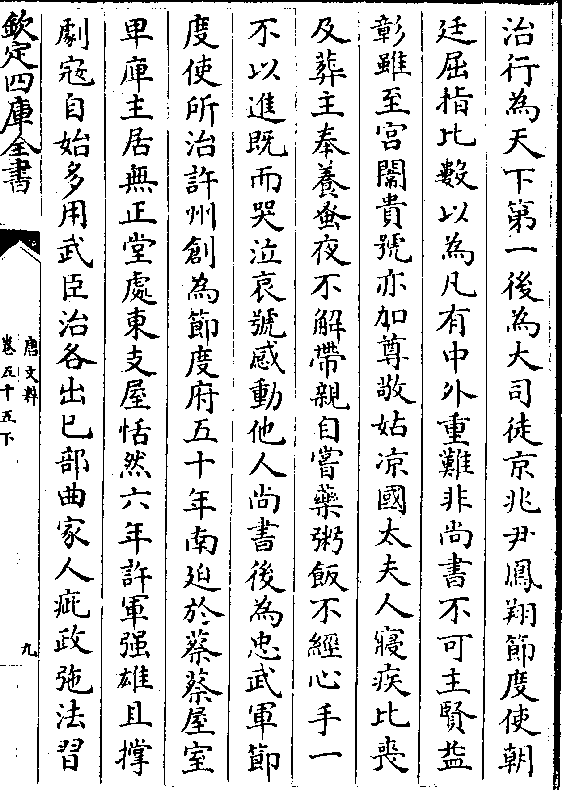 治行為天下第一後為大司徒京兆尹鳳翔節度使朝
廷屈指比數以為凡有中外重難非尚書不可主賢益
彰雖至宮闈貴號亦加尊敬姑凉國太夫人寢疾比喪
及葬主奉養蚤夜不解帶親自嘗藥粥飯不經心手一
不以進既而哭泣哀號感動他人尚書後為忠武軍節
度使所治許州創為節度府五十年南迫於蔡蔡屋室
卑庫主居無正堂處東支屋恬然六年許軍强雄且撑
劇寇自始多用武臣治各出已部曲家人疵政弛法習
欽定四庫全書
唐文粹
卷五十五下
九